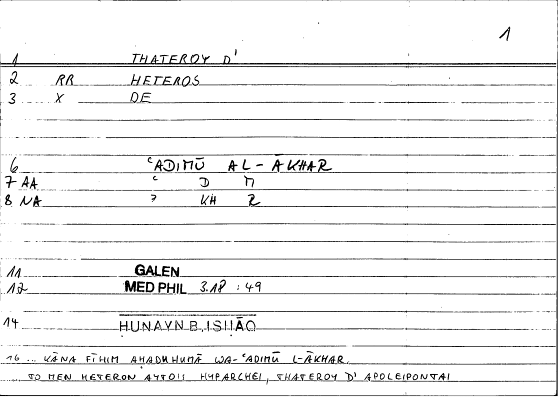 1
1 THATEROY D'
2 RR HETEROS
3 X DE
6 ʿADIMŪ AL-ĀKHAR
7 AA ʿ D M
8 NA ʾ KH R
11 GALEN
12 MED PHIL 3.18 : 49
14 HUNAYN B. ISḤĀQ
16 ... KĀNA FĪHIM AḤADUHUMĀ WA-ʿADIMŪ L-ĀKHAR.
... TO MEN HETERON AYTOIS HYPARCHEI, THATEROY D' APOLEIPONTAI